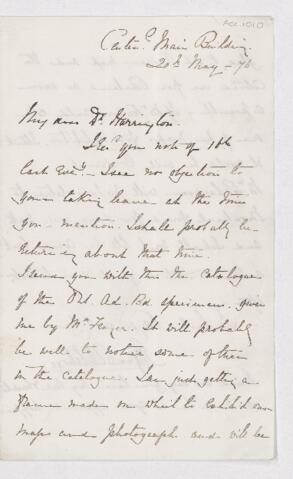 Acc. 1010
Main Building
20th May - 76
My dear Dr. Harrington.
I recd your note of 16th
last Eveg. I see no objection to
your taking leave at the time
you mention. I shall probably be
returning about that time.
I send you with this the catalogue
of the specimens given
me by Mr. It will probably
be well to notice some of them
in the catalogue. I am just getting a
frame made on which to exhibit our
maps and photographs and will be